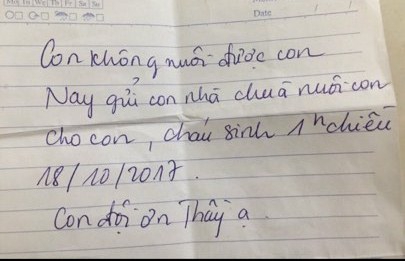 Mo Tu We Th Fr Sa Su
Date / /
Con không nuôi được con
Nay gửi con nhà chuà nuôi con
cho con, cháu sinh 1h chiều
18/10/2017.
Con đội ơn Thầy ạ.